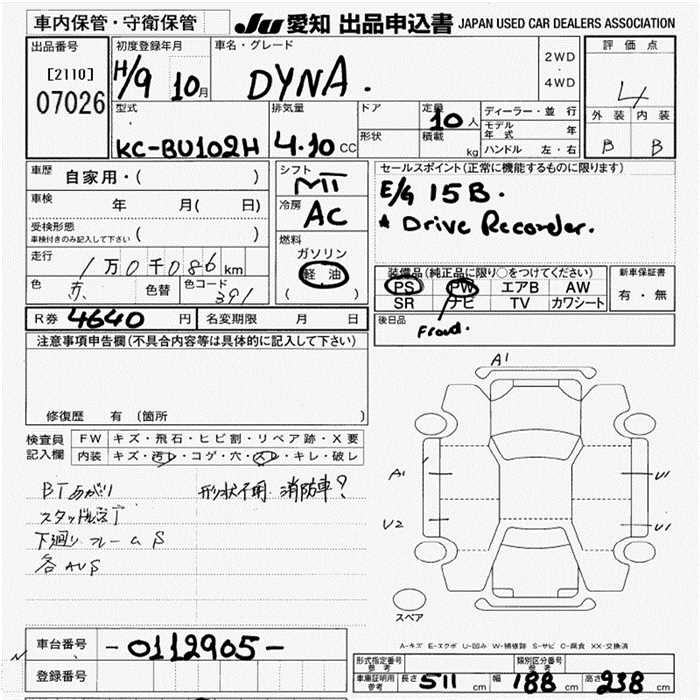 車内保管・守衛保管
JU 愛知 出品申込書 JAPAN USED CAR DEALERS ASSOCIATION
出品番号
[2110]
07026
初度登録年月
H/9 10月
車名・グレード
DYNA.
2WD
・
4WD
評価点
4
外装 内装
B B
型式
KC-BU102H
排気量
4.10 CC
ドア
形状
定員
10 人
積載
kg
ディーラー・並行
モデル年式 年
ハンドル 左・右
車歴 自家用・( )
車検 年 月( 日)
受検形態
車検付きのみ記入して下さい ( )
走行 1万0千086km
色 赤 色替 色コード 391
シフト
MT
冷房
AC
燃料
ガソリン
軽油
( )
セールスポイント(正常に機能するものに限ります)
E/G 15B.
* Drive Recorder.
装備品(純正品に限り○をつけてください)
PS PW エアB AW
SR ナビ TV カワシート
新車保証書
有・無
後日品
Front.
R券 4640 円 名変期限 月 日
注意事項申告欄(不具合内容等は具体的に記入して下さい)
修復歴 有 (箇所 )
検査員
記入欄
FW キズ・飛石・ヒビ割・リペア跡・X要
内装 キズ・汚レ・コゲ・穴・スレ・キレ・破レ
BTあがり 形状不明 消防車?
下廻り フレーム S
各 AUS
A1
A1
U2
U1
U1
スペア
A-キズ E-エクボ U-凹み W-補修跡 S-サビ C-腐食 XX-交換済
車台番号 -0112905-
登録番号
形式指定番号
参考
類別区分番号
参考
車庫証明用
参考
長さ 511 cm 幅 188 cm 高さ 238 cm